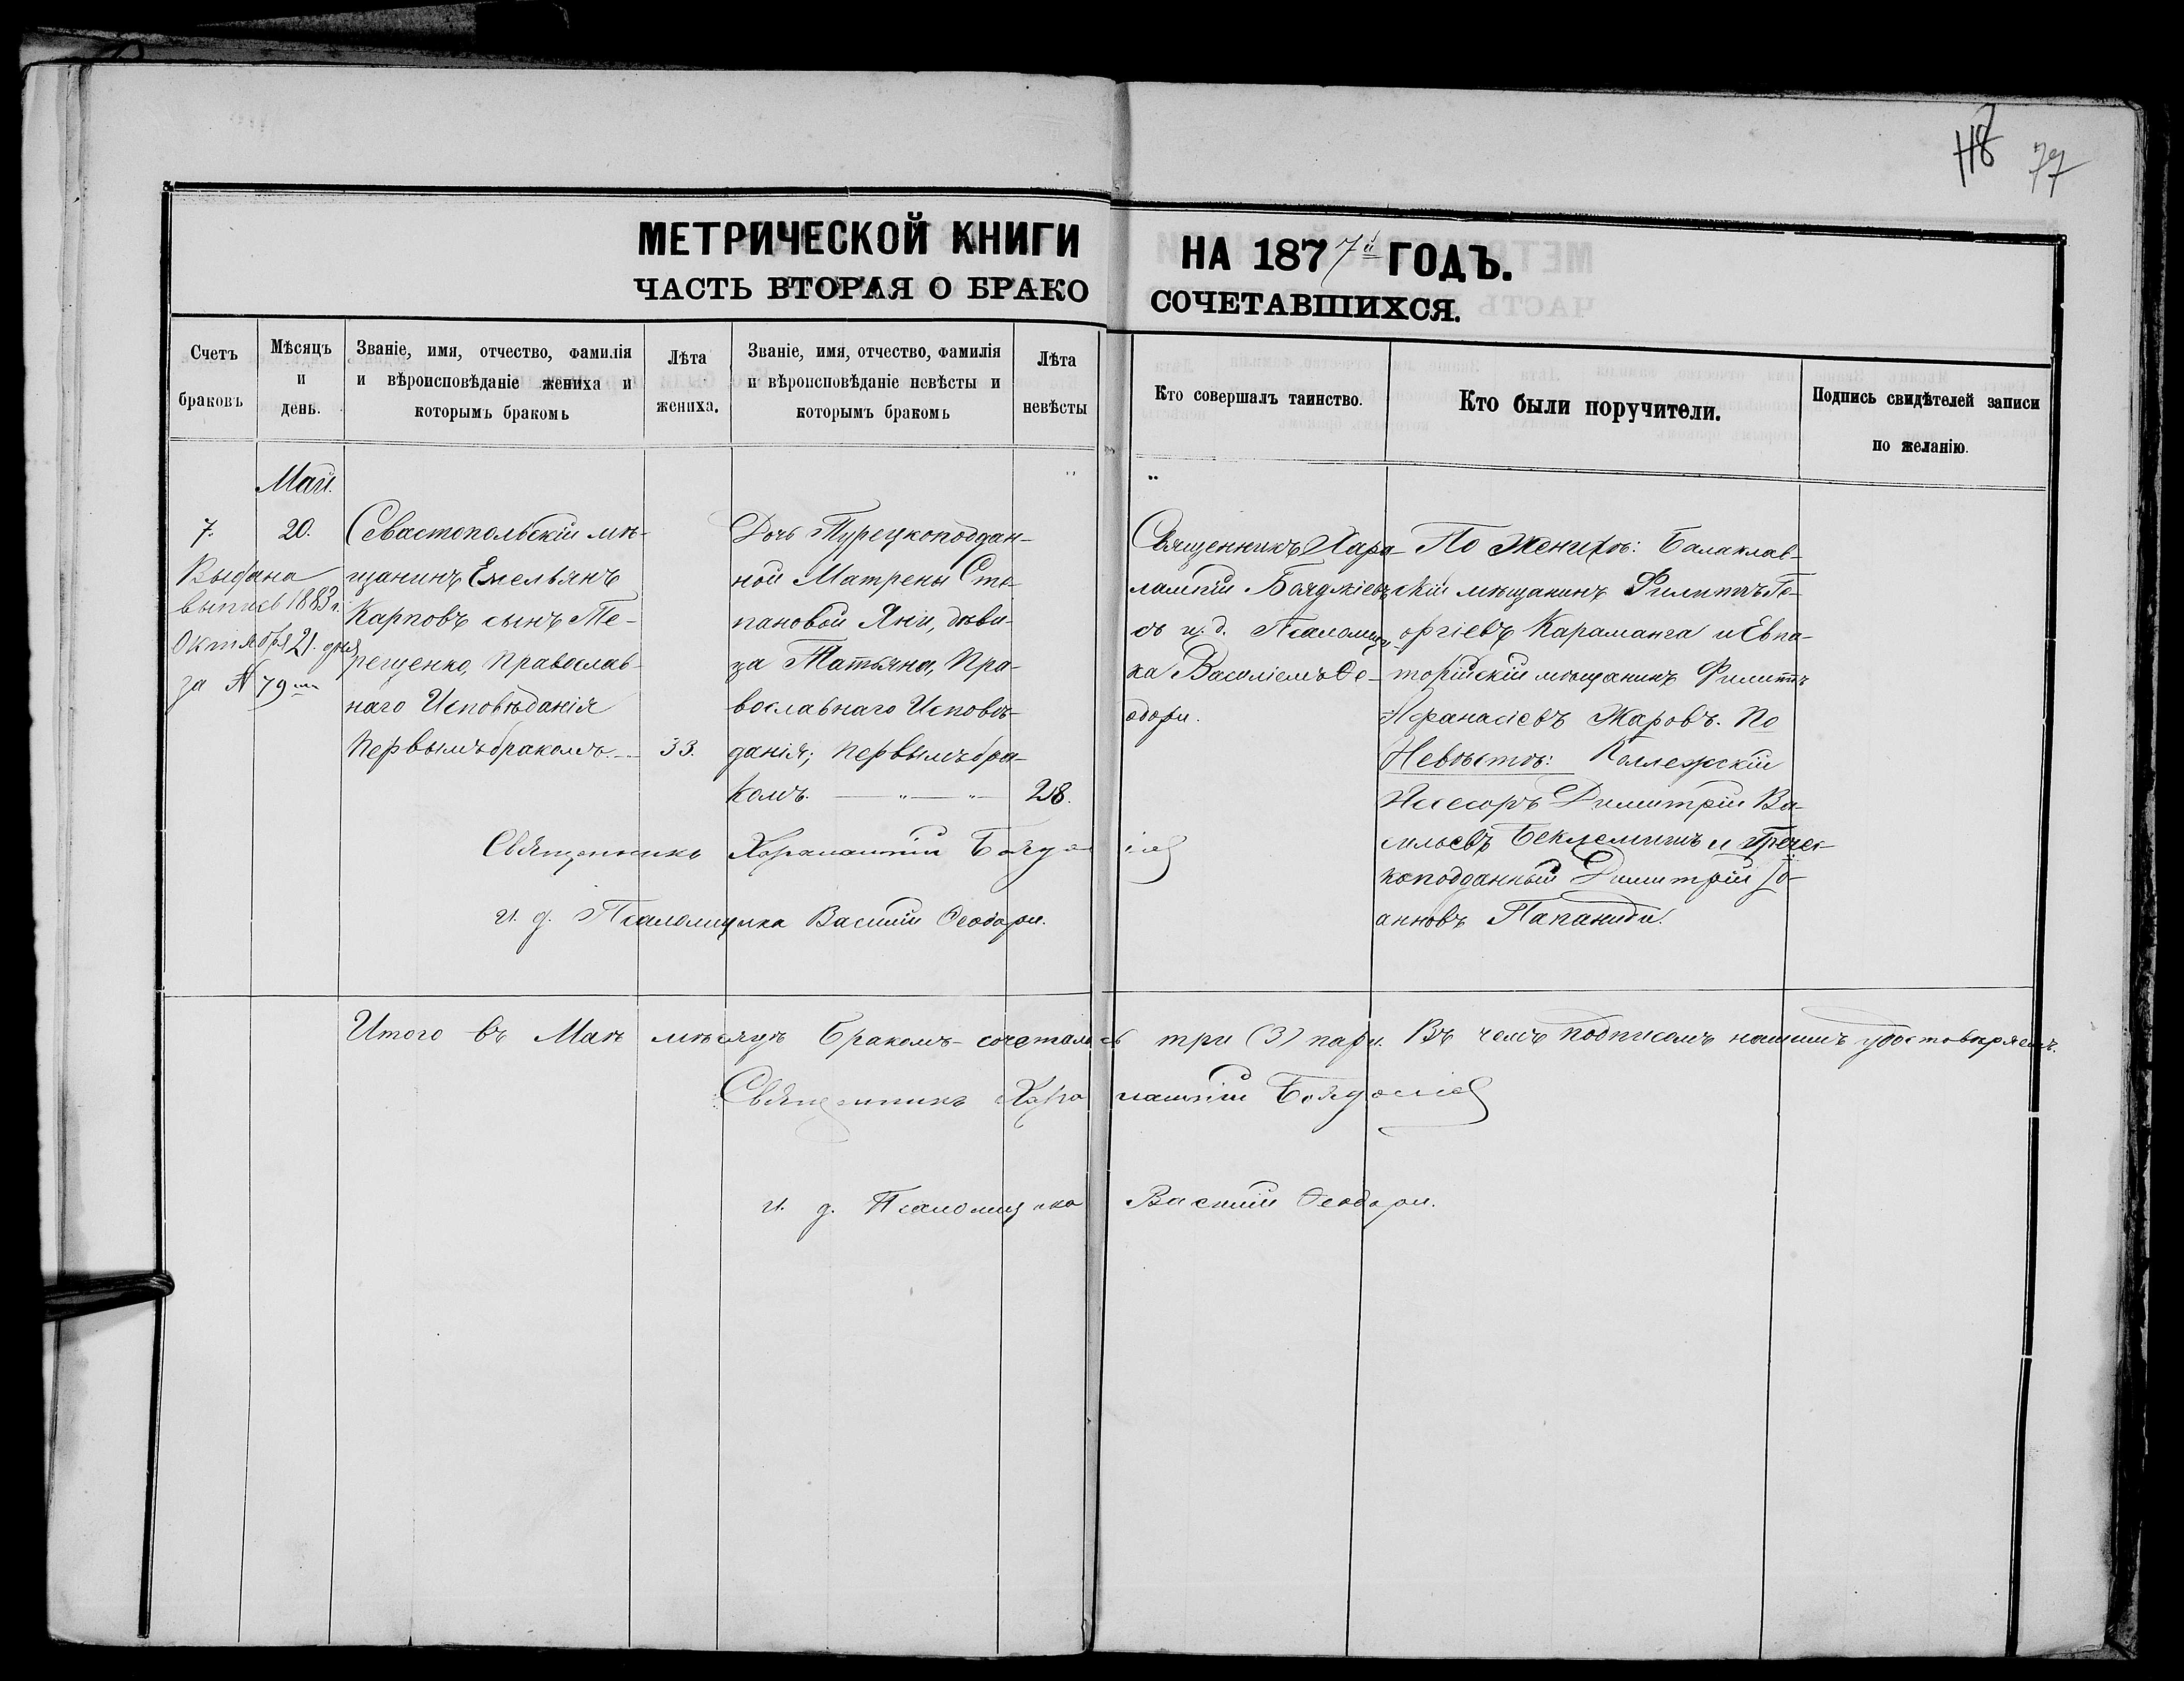 118 77
МЕТРИЧЕСКОЙ КНИГИ НА 1877й ГОДЪ.
ЧАСТЬ ВТОРАЯ О БРАКОСОЧЕТАВШИХСЯ.
Счетъ браковъ
Мѣсяцъ и день.
Званіе, имя, отчество, фамилія
и вѣроисповѣданіе жениха и
которымъ бракомъ
Лѣта жениха.
Званіе, имя, отчество, фамилія
и вѣроисповѣданіе невѣсты и
которымъ бракомъ
Лѣта невѣсты
Кто совершалъ таинство.
Кто были поручители.
Подпись свидѣтелей записи
по желанію.
Май.
7.
Выдана
выпись 1883 г.
Октября 21. дня
за № 79
20.
Севастопольскій мѣ-
щанинъ Емельянъ
Карповъ сынъ Те-
рещенко, Православ-
наго Исповѣданія
Первымъ бракомъ.
33.
Дочь Турецкоподдан-
ной Матрены Сте-
пановой Яни, дѣви-
ца Татьяна, Пра-
вославнаго Исповѣ-
данія; первымъ бра-
комъ.
28.
Священникъ Хара-
лампій Бояджіевъ
съ и. д. Псаломщи-
ка Василіемъ Ѳе-
одори.
По Женихѣ: Балаклав-
скій мѣщанинъ Филиппъ Ге-
оргіевъ Караманга и Евпа-
торійскій мѣщанинъ Филиппъ
Афанасіевъ Жаровъ. По
Невѣстѣ: Коллежскій
Ассесоръ Димитрій Ва-
сильевъ Беклемишъ и Гречес-
коподданный Димитрій Іо-
анновъ Папаниди.
Священникъ Харалампій Бояджіев
и. д. Псаломщика Василій Ѳеодори.
Итого въ Маѣ мѣсяцѣ Бракомъ сочеталось три (3) пары. Въ чемъ подписомъ нашимъ удостовѣряемъ.
Священникъ Харалампій Бояджіев
и. д. Псаломщика Василій Ѳеодори.